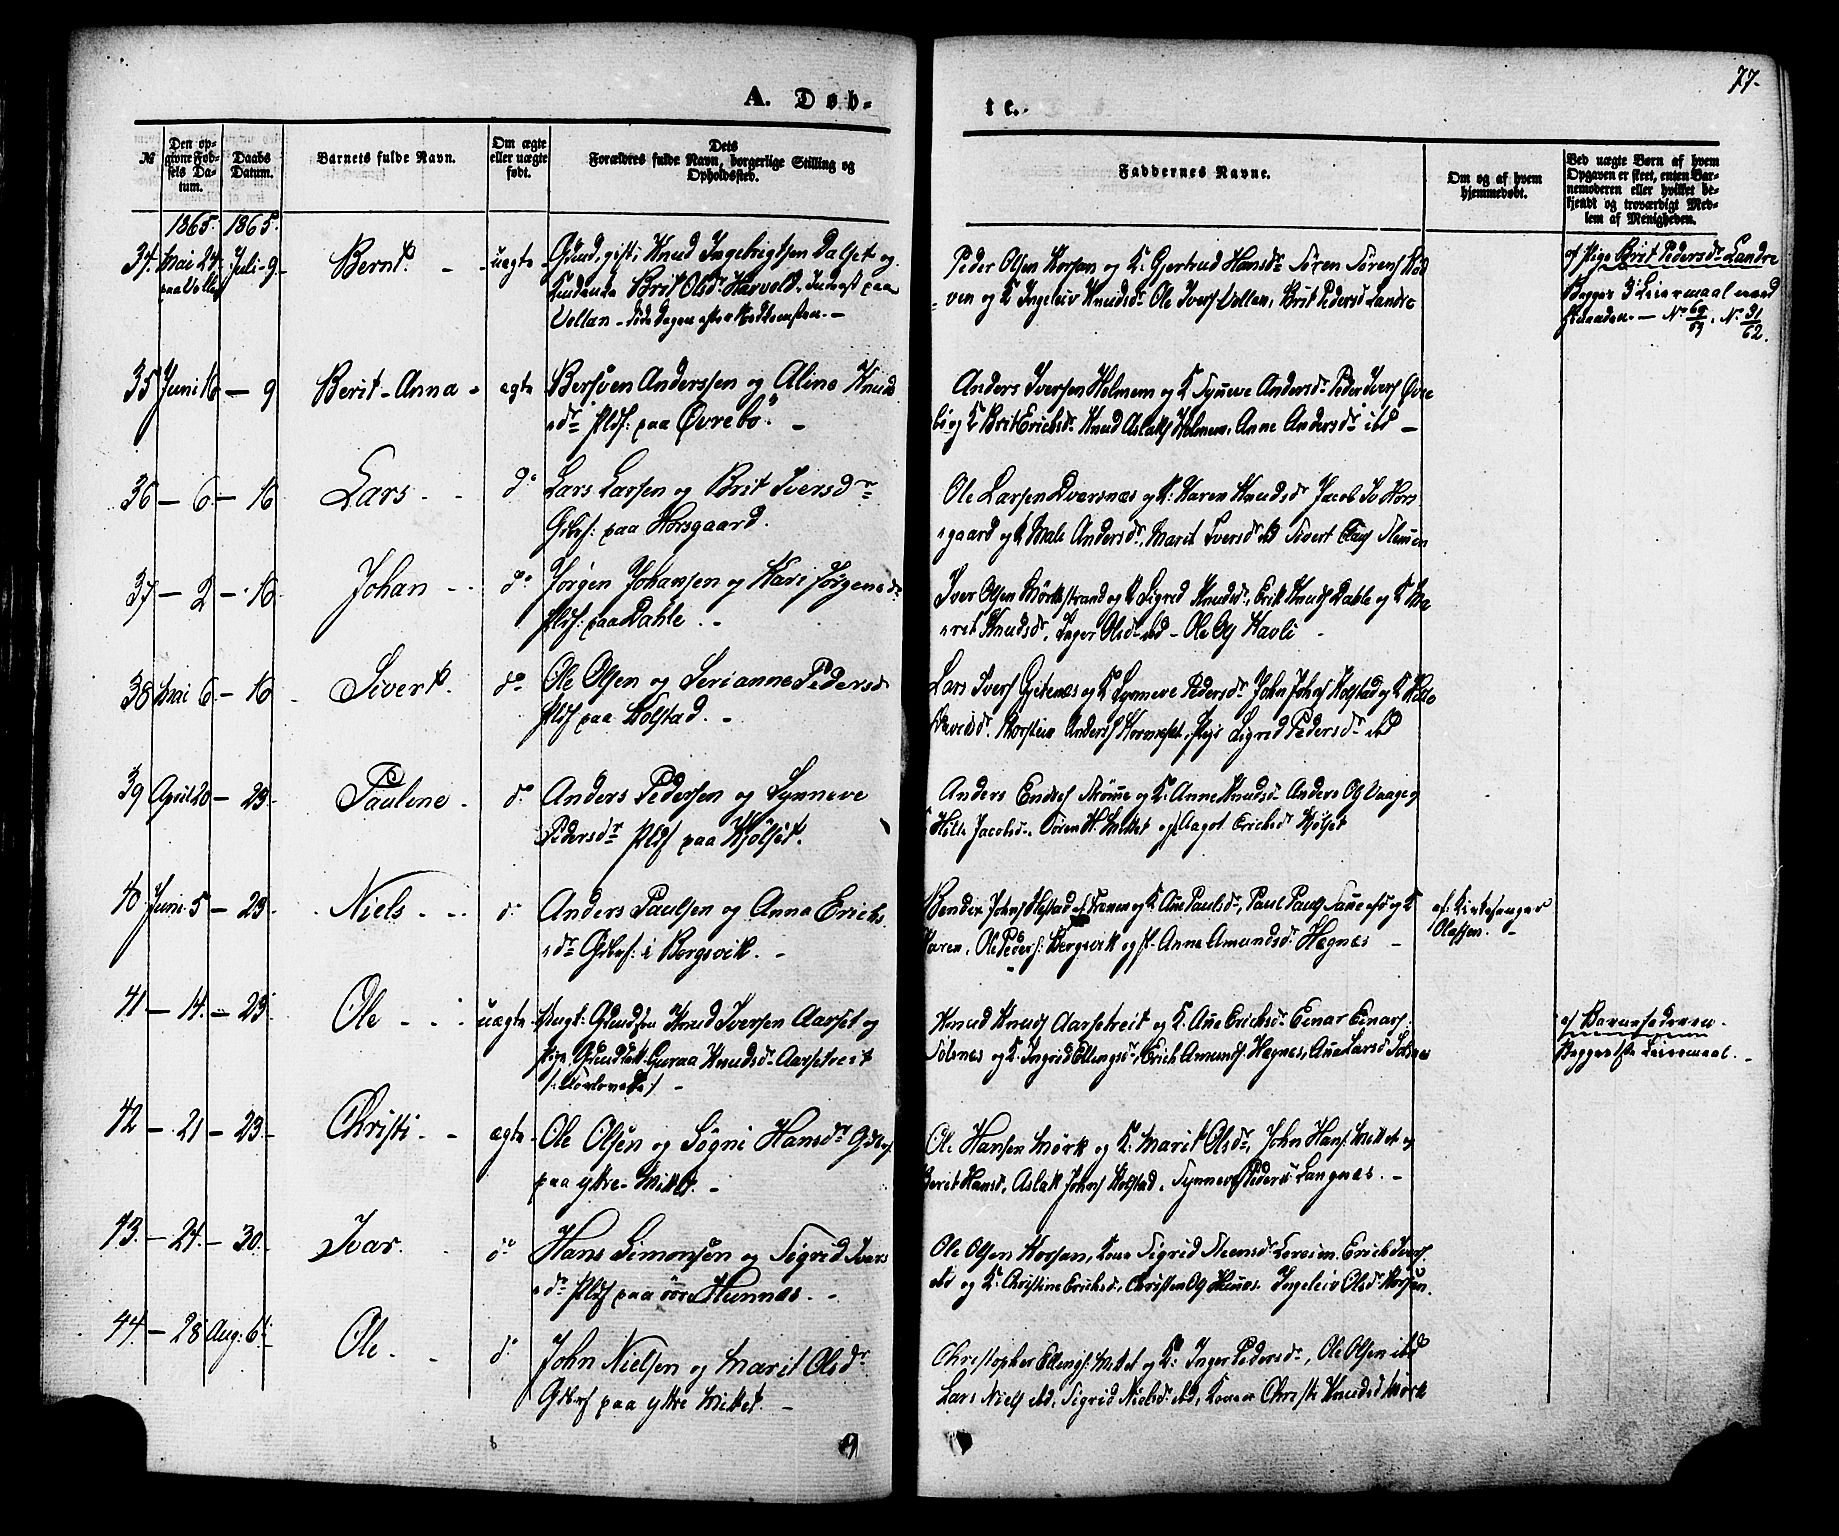 77.
A. Døb-
te.
№
Den op-
givne Fød-
sels Da-
tum.
Daabs
Datum.
Barnets fulde Navn.
Om ægte
eller uægte
født.
Dets
Forældres fulde Navn, borgerlige Stilling og
Opholdssted.
Faddernes Navne.
Om og af hvem
hjemmedøbt.
Ved uægte Børn af hvem
Opgaven er skeet, enten Bar-
nemoderen eller hvilket be-
kjendt og troværdigt Med-
lem af Menigheden.
1865. 1865.
34. Mai 24 Juli 9 Bernt. uægte Gmd, gift, Knud Ingebrigtsen Dalset og
paa Vollan Brit Olsdr Harvold. paa
Vollan -
Peder Olsen Korsan og K. Gjertrud Hansdr Søren Sørens
ven og K Ingeleiv Knudsdr Ole Ivers Vollan, Brit Pedersd Landre
af Pige Brit Pedersdr Landre
Begges 3 Leiermaal med
No 69/59. No 31/62.
35 Juni 16 - 9 Berit-Anna - ægte Bersven Anderssen og Aline Knud
sdr Plds: paa Øvrebø. -
Anders Iversen Holmem og K Synneve Andersdr Peder Ivers Øvre
bø og K Brit Erichsdr Knud Aslaks Holmem, Anne Andersdr ibd -
36 - 6 - 16 Lars - do Lars Larsen og Brit Iversdr
Gdbr: paa Horsgaard.
Ole Larsen Kversnæs og K: Karen Knudsdr Jacob Iv Hors
gaard og K Male Andersdr, Marit Iversd ibd Sivert
37 - 2 - 16 Johan - do Jørgen Johansen og Kari Jørgensdr
Plds: paa Dahle. -
Iver Olsen Mörkestrand og K Sigrid Knudsdr, Erik Knuds Dahle og K Ma
rit Knudsdr, Inger Olsdr ibd - Ole Havli -
38 Mai 6 - 16 Sivert. do Ole Olsen og Serianne Pedersdr
Plds paa Kolstad. -
Lars Ivers Gjetenæs og K Synneve Pedersdr John Johns Kolstad og K
Davidsdr. Thorstein Anders Hornæset, Pige Sigrid Pedersdr ibd
39 April 20 - 23 Pauline - do Anders Pedersen og Synneve
Pedersdr Plds paa Kjölset.
Anders Endres Strömme og K: Anne Knudsdr Anders Vaage og
Hilla Jacobsdr. Sören H. Mittet og P Aagot Erichsdr Kjölset
40 Juni 5 - 23 Niels - do Anders Paulsen og Anna Erichs
sdr Gdbrs: i Bergsvik. -
Bendix Johns K Ane Paulsdr, Paul Pauls
Karen. Ole Peders: Bergsvik og P. Anne Amundsdr Hægnæs -
af: Kirkesanger
Olafsen. -
41 - 14. - 23 Ole - uægte Ungk: Gdmd søn Knud Iversen Aarset og
Pige Gdmd Guraa Knudsdr Aarsetreit
/:Forlovede:/ -
Knud Knuds Aarsetreit og K. Ane Erichsdr Einar Einars:
Solsnes og K. Ingrid Ellingsdr, Erich Amunds. Hægnes, Ane Larsd Solsnes
af Barnefaderen.
Begges 1ste Leiermaal. -
42 - 21 - 23 Christi. - ægte Ole Olsen og Søgni Hansdr Gdbr
paa ytre-Mittet. -
Ole Hansen Mörk og K: Marit Olsdr, John Hans Mittet og
Berit Hansd, Aslak Johns Kolstad. Synneve Pedersdr Langnæs. -
43. - 24 - 30. Ivar. do Hans Simonsen og Sigrid Ivers
sdr Plds paa övre Hunnæs. -
Ole Olsen Korsan, Kone Sigrid Erich Ivers.
ibd og K. Christine Erichsdr, Christen Hunnes. Ingeleiv Olsdr Korsan.
44. - 28 Aug: 6 Ole. - do John Nielsen og Marit Olsdr
Gdbrs paa ytre Mittet. -
Christopher Ellings: Mittet og K: Inger Pedersdr, Ole Olsen ibd
Lars Niels ibd, Sigrid Nielsdr ibd, Konen Christi Knudsd Mörk